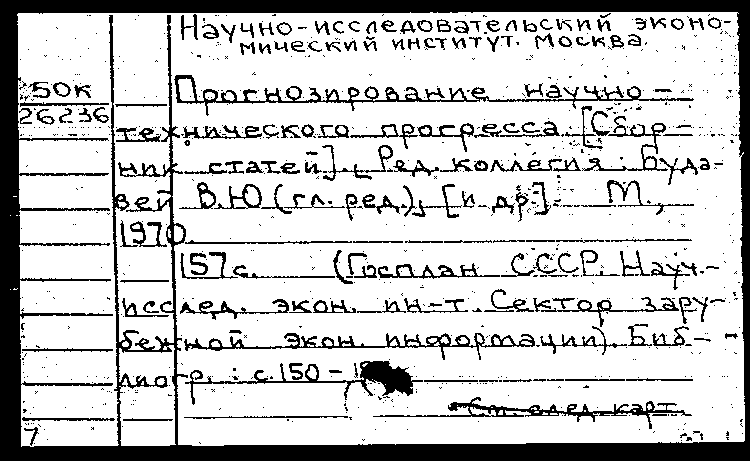 Научно-исследовательский эконо-
мический институт. Москва.
50к Прогнозирование научно-
26236 технического прогресса. [Сбор-
ник статей]. Ред. коллегия: Буда-
вей В.Ю (гл. ред.), [и др]. М.,
1970.
157с. (Госплан СССР. Науч.-
исслед. экон. ин-т. Сектор зару-
бежной экон. информации). Биб-
лиогр.: с.150-
См. след. карт.
7